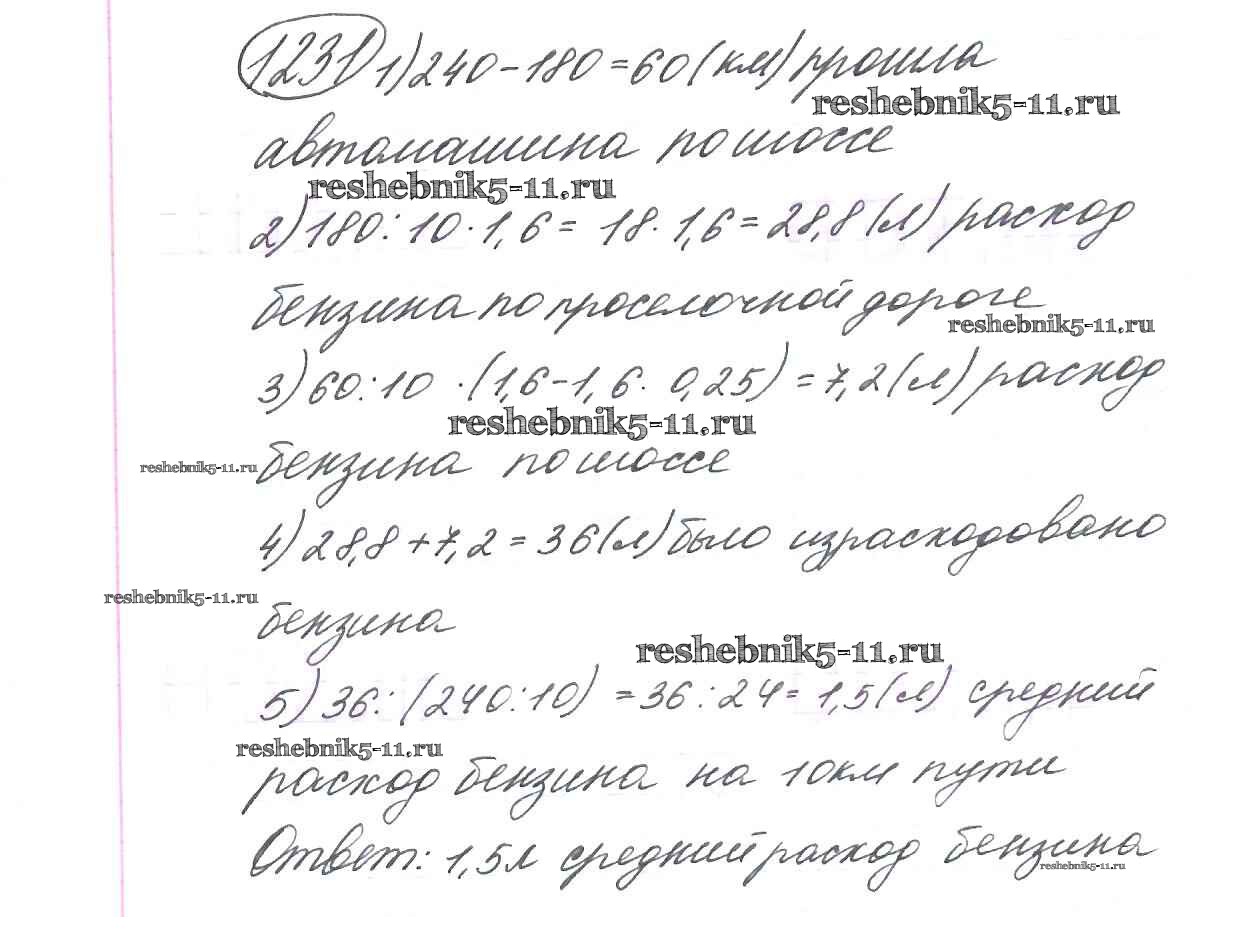 1231 1) 240 - 180 = 60 (км) прошла
reshebnik5-11.ru
автомашина по шоссе
reshebnik5-11.ru
2) 180 : 10 · 1,6 = 18 · 1,6 = 28,8 (л) расход
бензина по проселочной дороге
reshebnik5-11.ru
3) 60 : 10 · (1,6 - 1,6 · 0,25) = 7,2 (л) расход
reshebnik5-11.ru
reshebnik5-11.ru
бензина по шоссе
4) 28,8 + 7,2 = 36 (л) было израсходовано
reshebnik5-11.ru
бензина
reshebnik5-11.ru
5) 36 : (240 : 10) = 36 : 24 = 1,5 (л) средний
reshebnik5-11.ru
расход бензина на 10км пути
Ответ: 1,5л средний расход бензина
reshebnik5-11.ru